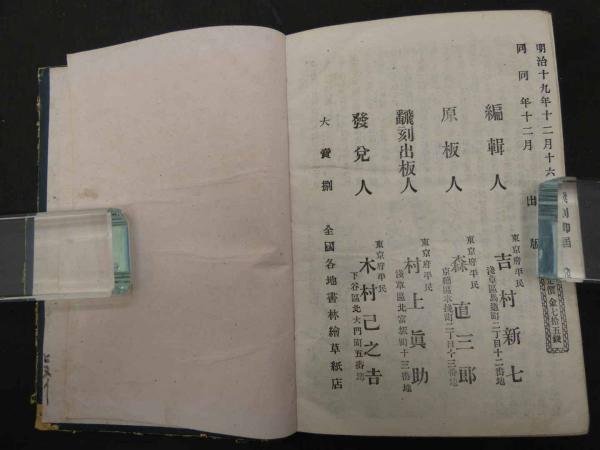 明治十九年十二月十六
同 同 年十二月 出版
定價金七拾五錢
編輯人
東京府平民
吉村新七
淺草區馬道町二丁目十二番地
原板人
東京府平民
森直三郎
京橋區水挽町二丁目十三番地
飜刻出板人
東京府平民
村上眞助
淺草區北富坂町十三番地
發兌人
東京府平民
木村己之吉
下谷區北大門町五番地
大賣捌
全國各地書林繪草紙店